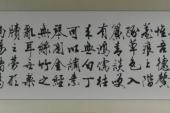 惟吾德馨
苔痕上階
綠草色入
簾青談笑
有鴻儒往
來無白丁
可以調素
琴閱金經
無絲竹之
亂耳無案
牘之勞形